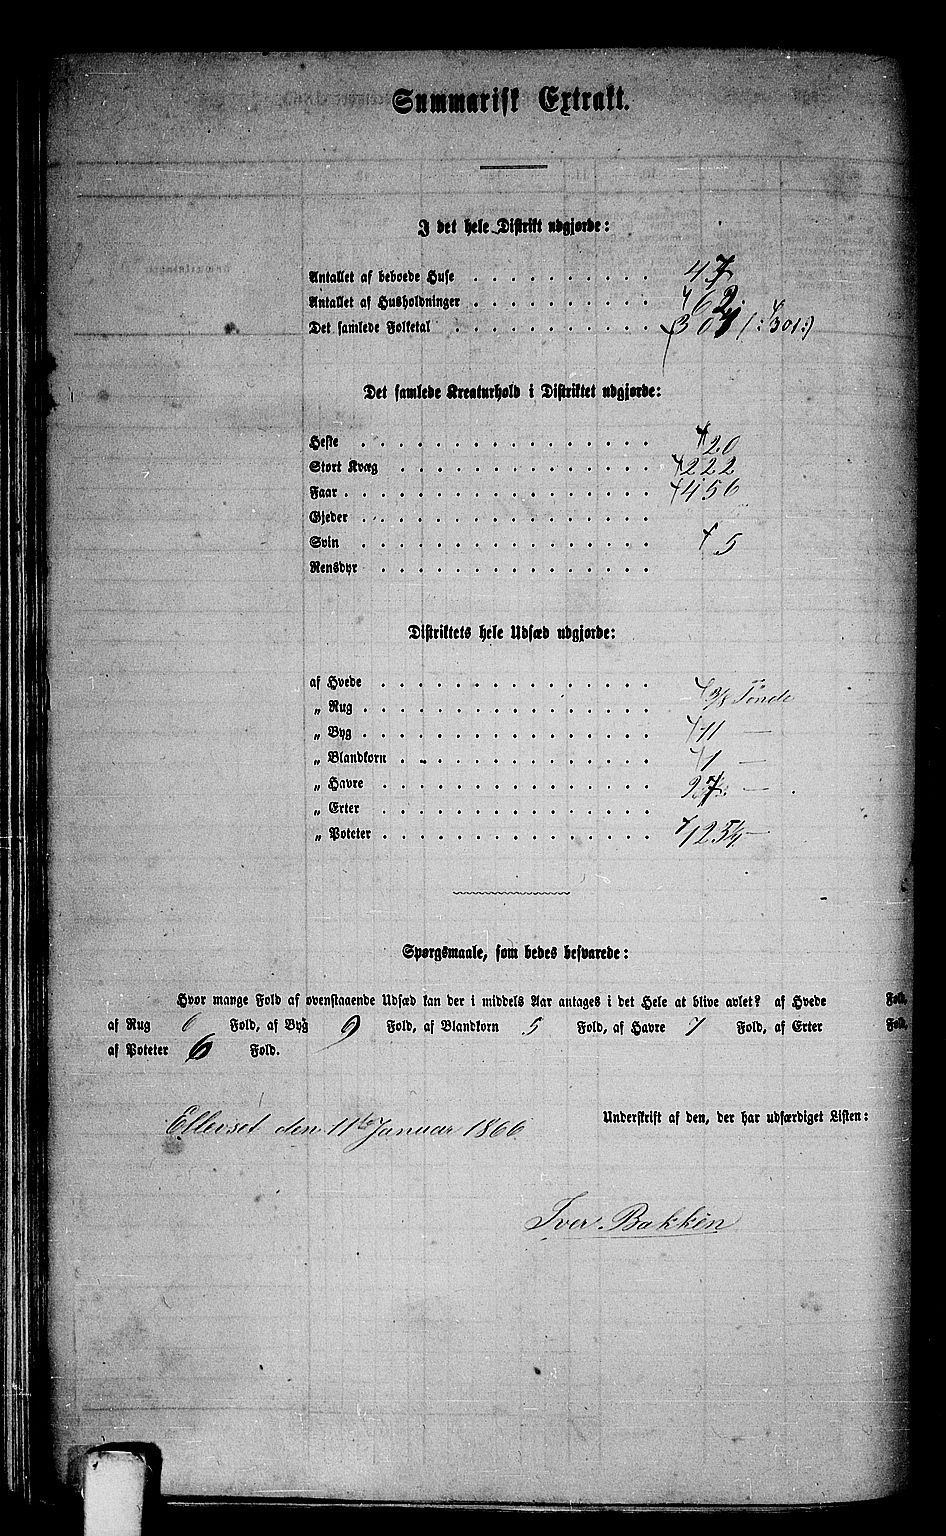 Summarisk Extrakt.
I det hele Distrikt udgjorde:
Antallet af beboede Huse . . . . . . . . . . 47
Antallet af Husholdninger . . . . . . . . . . 62
Det samlede Folketal . . . . . . . . . . (: 301 :)
Det samlede Kreaturhold i Distriktet udgjorde:
Heste . . . . . . . . . . 20
Stort Kvæg . . . . . . . . . . 222
Faar . . . . . . . . . . 456
Gjeder . . . . . . . . . .
Svin . . . . . . . . . . 5
Rensdyr . . . . . . . . . .
Distriktets hele Udsæd udgjorde:
af Hvede . . . . . . . . . .
„ Rug . . . . . . . . . . 3/8 Tønde
„ Byg . . . . . . . . . . 11 —
„ Blandkorn . . . . . . . . . . 1 —
„ Havre . . . . . . . . . . —
„ Erter . . . . . . . . . .
„ Poteter . . . . . . . . . . —
Spørgsmaale, som bedes besvarede:
Hvor mange Fold af ovenstaaende Udsæd kan der i middels Aar antages i det Hele at blive avlet? af Hvede Fold,
af Rug 6 Fold, af Byg 9 Fold, af Blandkorn 5 Fold, af Havre 7 Fold, af Erter Fold,
af Poteter 6 Fold.
Underskrift af den, der har udfærdiget Listen:
Ellevset den 11te Januar 1866
Iver Bakken